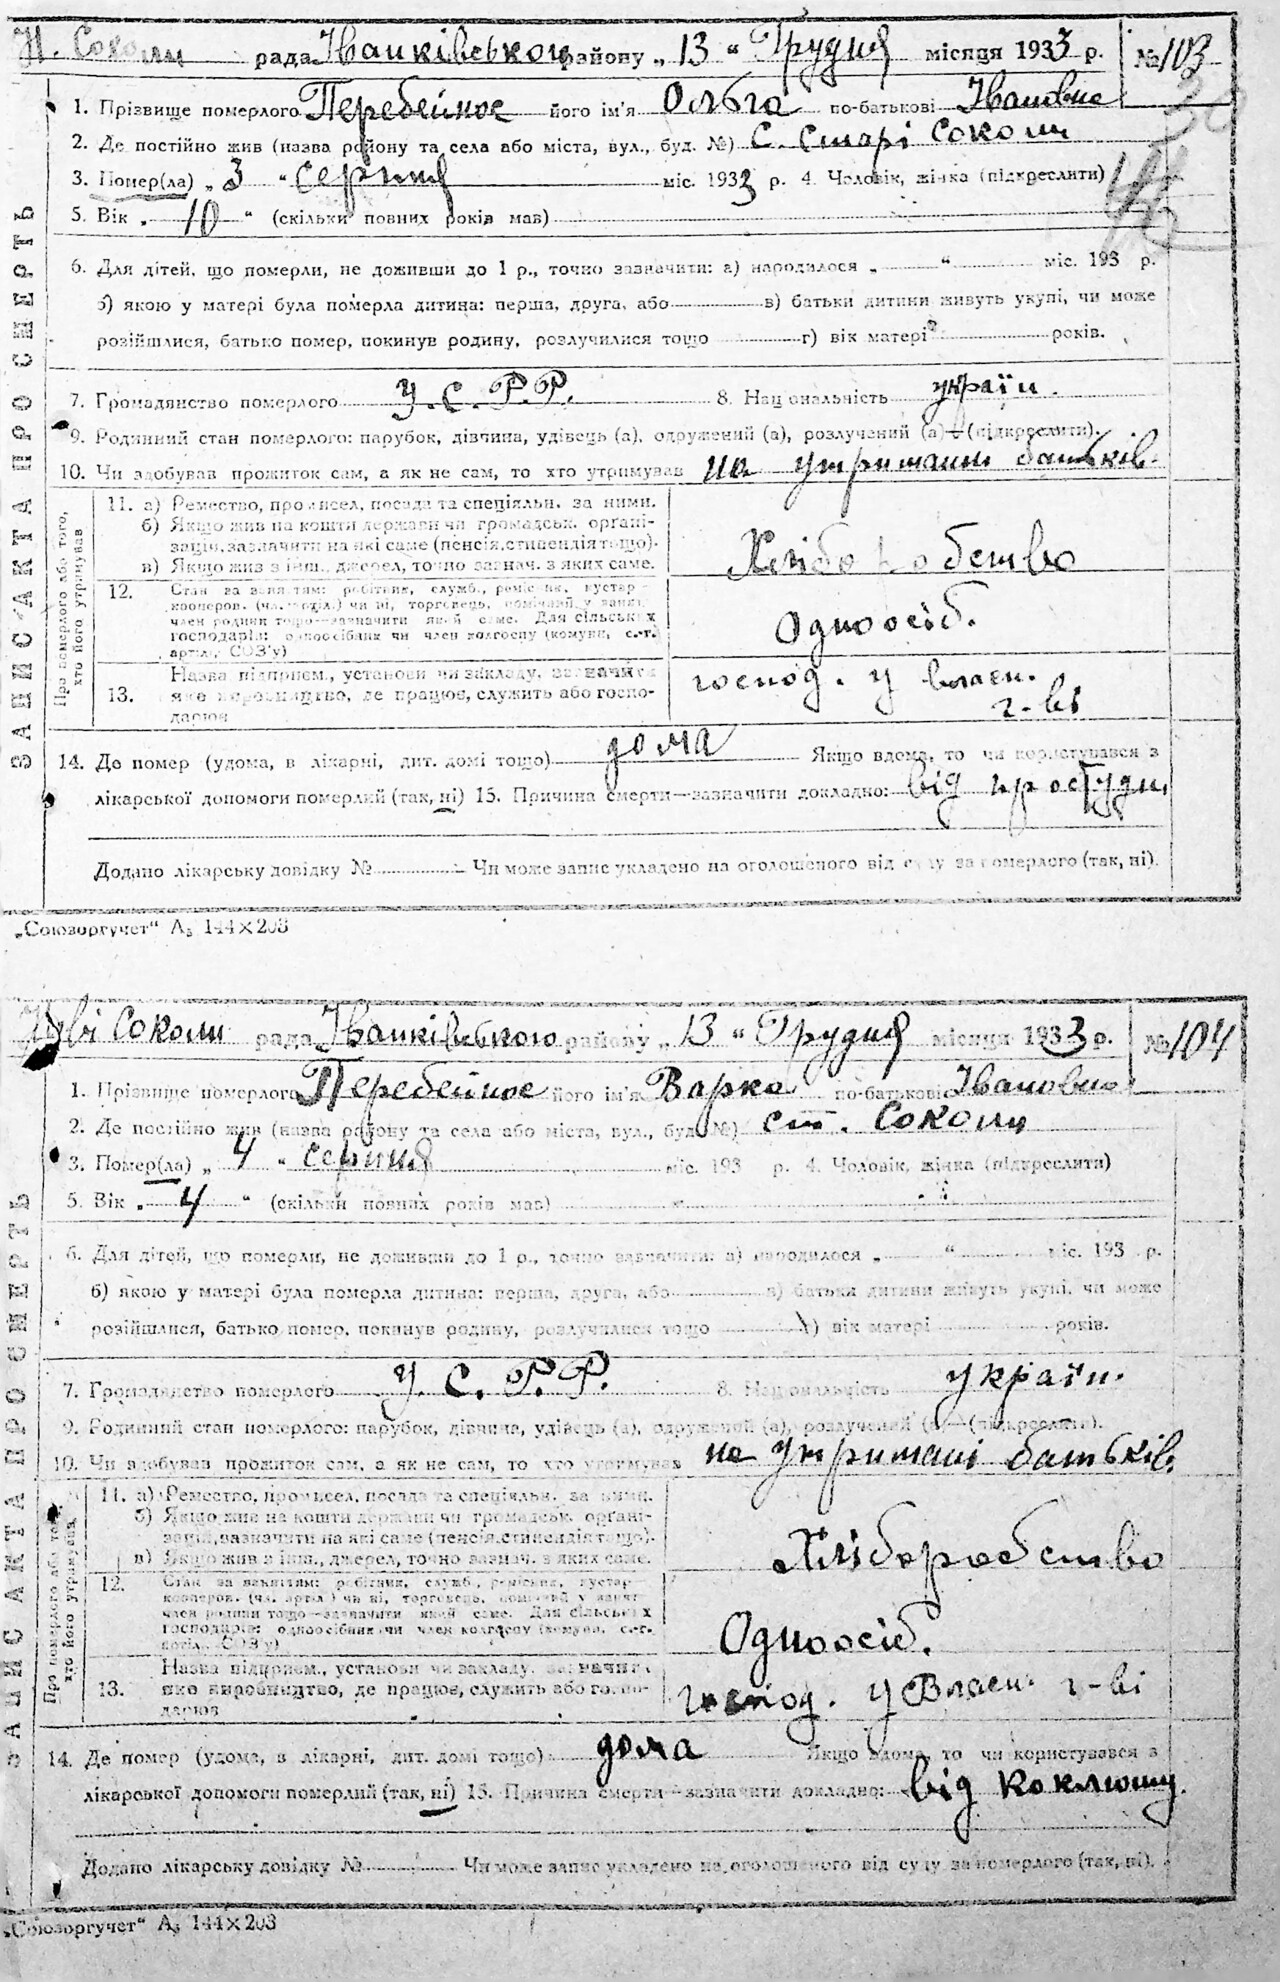 Н. Соколи рада Іванківського району „ 13 “ Грудня місяця 1933 р. № 103
1. Прізвище померлого Перебейнос його ім'я Ольга по-батькові Івановна
2. Де постійно жив (назва району та села або міста, вул., буд. №) с. Старі Соколи
3. Помер(ла) „ 3 “ серпня міс. 1933 р. 4. Чоловік, жінка (підкреслити)
5. Вік „ 10 “ (скільки повних років мав)
6. Для дітей, що померли, не доживши до 1 р., точно зазначити: а) народилося „ “ міс. 193 р.
б) якою у матері була померла дитина: перша, друга, або в) батьки дитини живуть укупі, чи може
розійшлися, батько помер, покинув родину, розлучилися тощо г) вік матері років.
7. Громадянство померлого У.С.Р.Р. 8. Національність україн.
9. Родинний стан померлого: парубок, дівчина, удівець (а), одружений (а), розлучений (а) — (підкреслити).
10. Чи здобував прожиток сам, а як не сам, то хто утримував на утриманні батьків.
ЗАПИС АКТА ПРО СМЕРТЬ
Про померлого або того, хто його утримував
11. а) Ремество, промисел, посада та спеціяльн. за ними.
б) Якщо жив на кошти держави чи громадськ. органі-
зацій, зазначити на які саме (пенсія, стипендія тощо).
в) Якщо жив з інш. джерел, точно зазнач. з яких саме.
Хліборобство
12. Стан за заняттям: робітник, служб., реміснк, кустар
кооперов. (чл. артіл.) чи ні, торговець, помічний у занят.
член родини тощо—зазначити який саме. Для сільських
господарів: одноосібник чи член колгоспу (комуни, с.-г.
артілі, СОЗ'у)
Одноосіб.
13. Назва підприєм., установи чи закладу, зазначити
яке виробництво, де працює, служить або госпо-
дарює
господ. у власн.
г-ві
14. Де помер (удома, в лікарні, дит. домі тощо) дома Якщо вдома, то чи користувався з
лікарської допомоги померлий (так, ні) 15. Причина смерти—зазначити докладно: від простуди,
Додано лікарську довідку № Чи може запис укладено на оголошеного від суду за померлого (так, ні).
„Союзоргучет“ А₅ 144×203
Нові Соколи рада Іванківського району „ 13 “ Грудня місяця 1933 р. № 104
1. Прізвище померлого Перебейнос його ім'я Варка по-батькові Івановна
2. Де постійно жив (назва району та села або міста, вул., буд. №) ст. Соколи
3. Помер(ла) „ 4 “ серпня міс. 193 р. 4. Чоловік, жінка (підкреслити)
5. Вік „ 4 “ (скільки повних років мав)
6. Для дітей, що померли, не доживши до 1 р., точно зазначити: а) народилося „ “ міс. 193 р.
б) якою у матері була померла дитина: перша, друга, або в) батьки дитини живуть укупі, чи може
розійшлися, батько помер, покинув родину, розлучилися тощо г) вік матері років.
7. Громадянство померлого У.С.Р.Р. 8. Національність україн.
9. Родинний стан померлого: парубок, дівчина, удівець (а), одружений (а), розлучений (а)—(підкреслити).
10. Чи здобував прожиток сам, а як не сам, то хто утримував на утримані батьків.
ЗАПИС АКТА ПРО СМЕРТЬ
Про померлого або того, хто його утримував
11. а) Ремество, промисел, посада та спеціяльн. за ними.
б) Якщо жив на кошти держави чи громадськ. органі-
зацій, зазначити на які саме (пенсія, стипендія тощо).
в) Якщо жив з інш. джерел, точно зазнач. з яких саме.
Хліборобство
12. Стан за заняттям: робітник, служб., ремісник, кустар
кооперов. (чл. артіл.) чи ні, торговець, помічний у занят.
член родини тощо—зазначити який саме. Для сільських
господарів: одноосібник чи член колгоспу (комуни, с.-г.
артілі, СОЗ'у)
Одноосіб.
13. Назва підприєм., установи чи закладу, зазначити
яке виробництво, де працює, служить або госпо-
дарює
господ. у власн. г-ві
14. Де помер (удома, в лікарні, дит. домі тощо) дома Якщо вдома, то чи користувався з
лікарської допомоги померлий (так, ні) 15. Причина смерти—зазначити докладно: від коклюшу.
Додано лікарську довідку № Чи може запис укладено на оголошеного від суду за померлого (так, ні).
„Союзоргучет“ А₅ 144×203